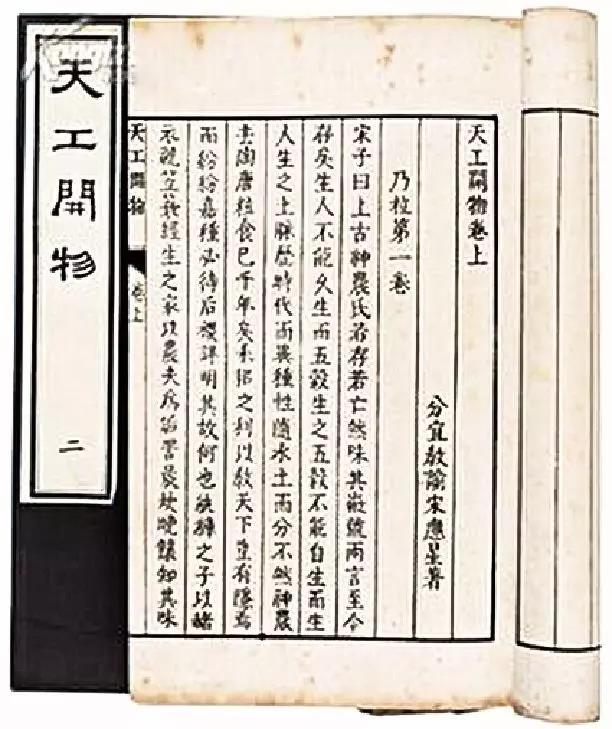 天工開物
二
天工開物卷上
分宜教諭宋應星著
乃粒第一卷
宋子曰上古神農氏若存若亡然味其徽號兩言至今
存矣生人不能久生而五穀生之五穀不能自生而生
人生之土脉歷時代而異種性隨水土而分不然神農
去陶唐粒食已千年矣耒耜之利以教天下豈有隱焉
而紛紛嘉種必待后稷詳明其故何也紈褲之子以赭
衣視笠蓑經生之家以農夫為詬詈晨炊晚饟知其味
天工開物
卷上